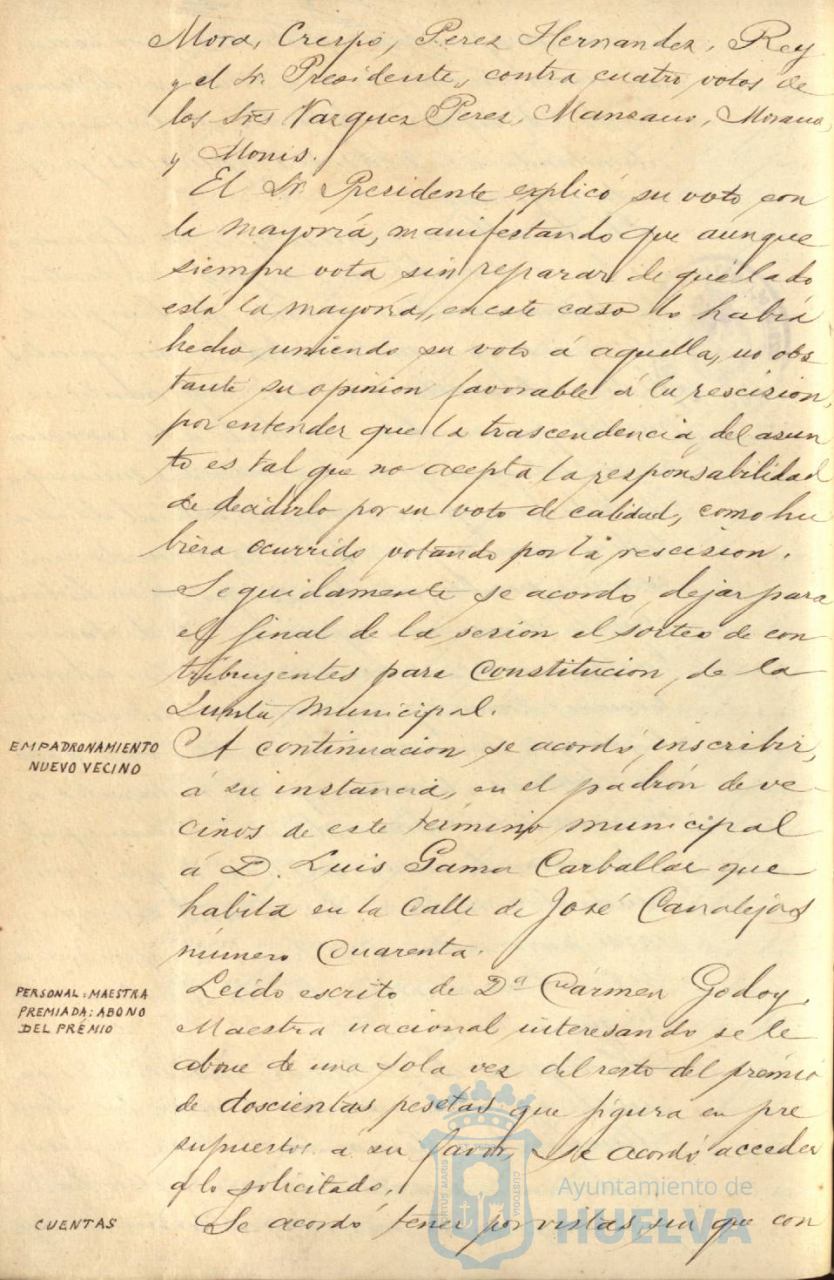 Mora, Crespo, Perez Hernandez, Rey
y el Sr. Presidente, contra cuatro votos de
los Sres Vazquez Perez, Manzano, Morano,
y Monis.
El Sr. Presidente explicó su voto con
la mayoría, manifestando que aunque
siempre vota sin reparar de que lado
esta la mayoría, en este caso lo había
hecho uniendo su voto á aquella, no obs
tante su opinion favorable á la rescision,
por entender que la trascendencia del asun
to es tal que no acepta la responsabilidad
de decidirlo por su voto de calidad, como hu
biera ocurrido votando por la rescision.
Seguidamente se acordó dejar para
el final de la sesion el sorteo de con
tribuyentes para Constitucion de la
Junta Municipal.
EMPADRONAMIENTO
NUEVO VECINO
A continuacion se acordó inscribir,
á su instancia, en el padrón de ve-
cinos de este término municipal
á D. Luis Gama Carballar que
habita en la Calle de José Canalejas
número Cuarenta.
PERSONAL: MAESTRA
PREMIADA: ABONO
DEL PREMIO
Leido escrito de Dª Cármen Godoy,
Maestra nacional interesando se le
abone de una sola vez del resto del premio
de doscientas pesetas que figura en pre
supuestos á su favor, se acordó acceder
a lo solicitado.
CUENTAS
Se acordó tener por vistas, sin que con
Ayuntamiento de
HUELVA